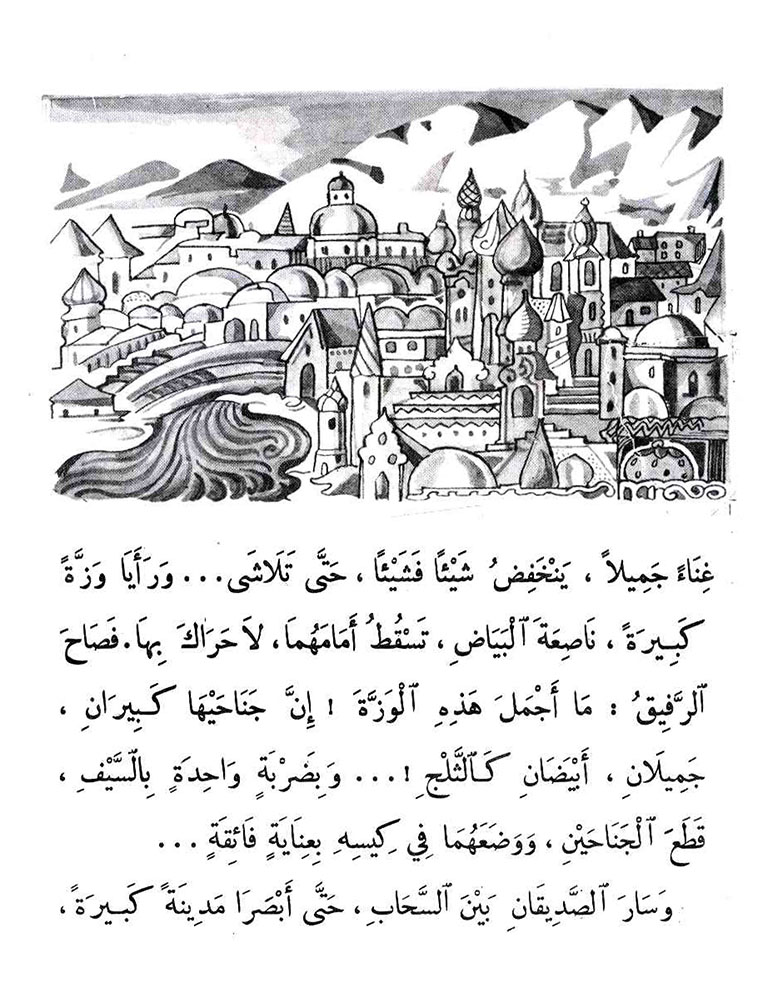 غِنَاءً جَمِيلاً ، يَنْخَفِضُ شَيْئًا فَشَيْئًا ، حَتَّى تَلَاشَى... وَرَأَيَا وَزَّةً
كَبِيرَةً ، نَاصِعَةَ ٱلْبَيَاضِ ، تَسْقُطُ أَمَامَهُمَا ، لاَ حَرَاكَ بِهَا. فَصَاحَ
ٱلرَّفِيقُ : مَا أَجْمَلَ هَذِهِ ٱلْوَزَّةَ ! إِنَّ جَنَاحَيْهَا كَبِيرَانِ ،
جَمِيلَانِ ، أَبْيَضَانِ كَٱلثَّلْجِ !... وَبِضَرْبَةٍ وَاحِدَةٍ بِٱلسَّيْفِ ،
قَطَعَ ٱلْجَنَاحَيْنِ ، وَوَضَعَهُمَا فِي كِيسِهِ بِعِنَايَةٍ فَائِقَةٍ ...
وَسَارَ ٱلصَّدِيقَانِ بَيْنَ ٱلسَّحَابِ ، حَتَّى أَبْصَرَا مَدِينَةً كَبِيرَةً ،